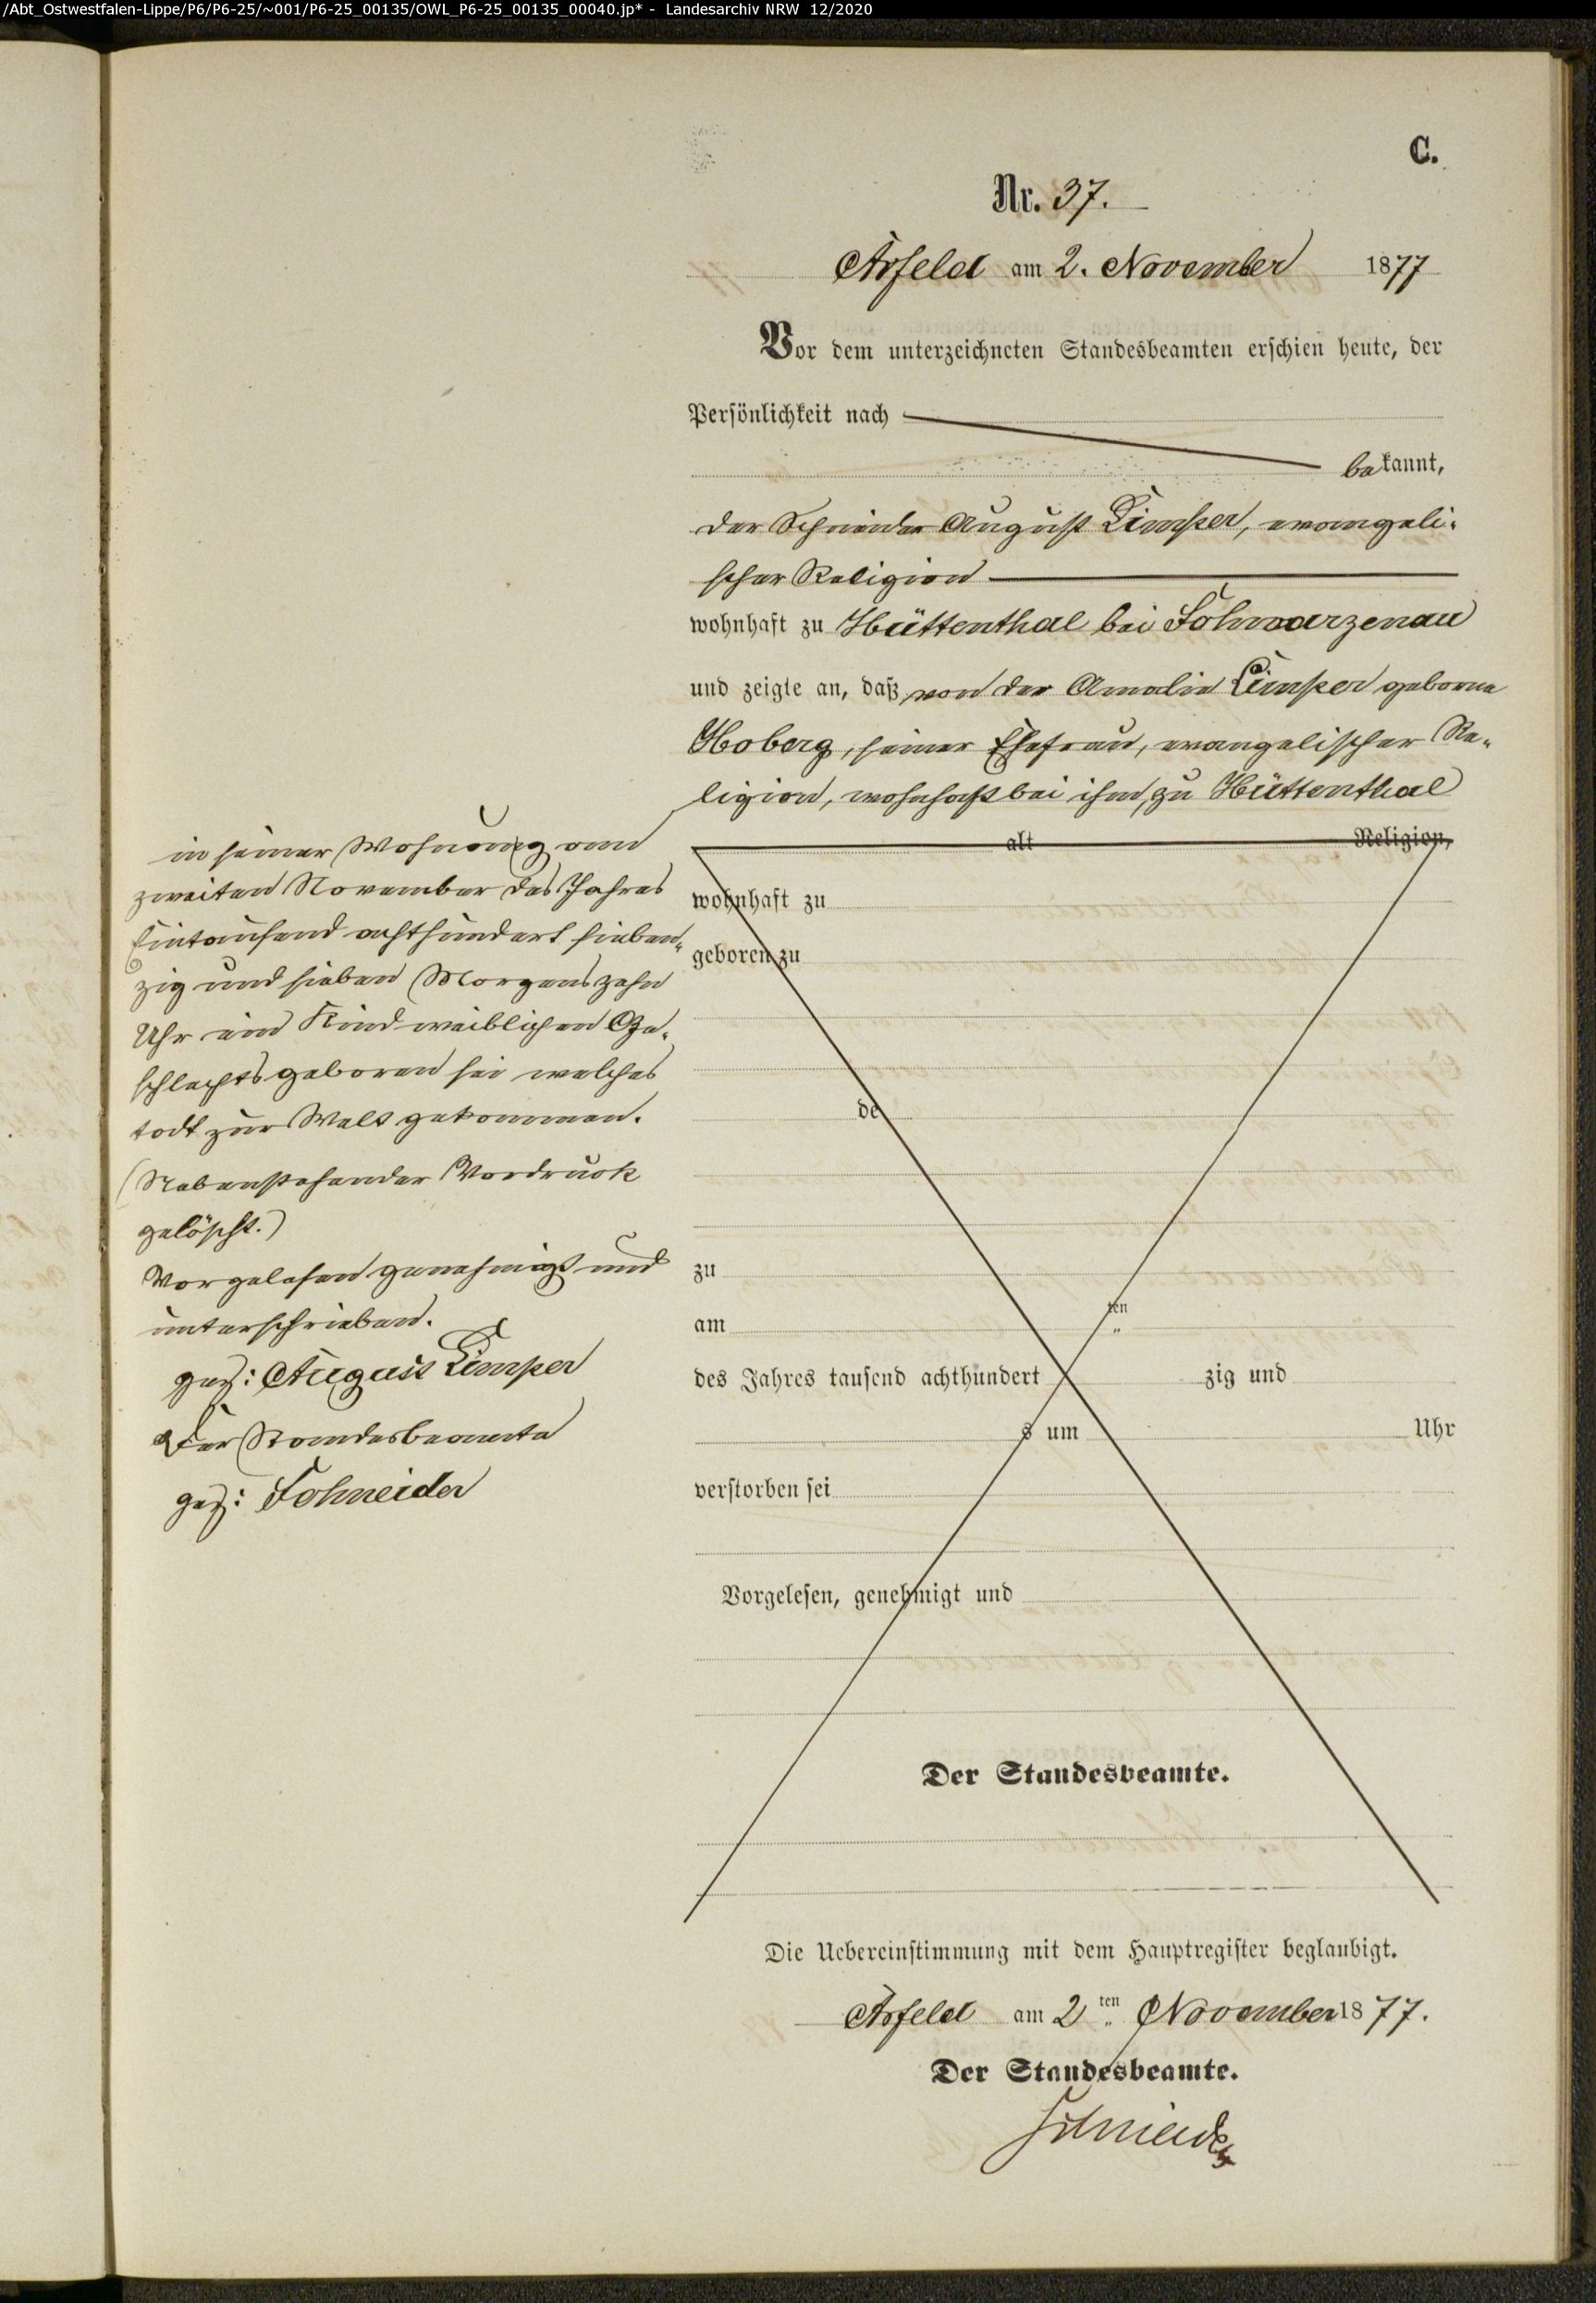 /Abt_Ostwestfalen-Lippe/P6/P6-25/~001/P6-25_00135/OWL_P6-25_00135_00040.jp* - Landesarchiv NRW 12/2020
C.
Nr. 37.
Arfeld am 2. November 1877
Vor dem unterzeichneten Standesbeamten erschien heute, der
Persönlichkeit nach
bekannt,
der Schneider August Limper, evangeli-
scher Religion
wohnhaft zu Hüttenthal bei Schwarzenau
und zeigte an, daß von der Amalie Limper geborne
Hoberg, seiner Ehefrau, evangelischer Re-
ligion, wohnhaft bei ihm, zu Hüttenthal
in seiner Wohnung am
zweiten November des Jahres
Eintausend achthundert sieben-
zig und sieben Morgens zehn
Uhr ein Kind weiblichen Ge-
schlechts geboren sei welches
todt zur Welt gekommen.
(Nebenstehender Vordruck
gelöscht.)
Vorgelesen genehmigt und
unterschrieben.
gez: August Limper
Der Standesbeamte
gez: Schneider
alt Religion,
wohnhaft zu
geboren zu
de
zu
am ten
des Jahres tausend achthundert zig und
s um Uhr
verstorben sei
Vorgelesen, genehmigt und
Der Standesbeamte.
Die Uebereinstimmung mit dem Hauptregister beglaubigt.
Arfeld am 2ten November 1877.
Der Standesbeamte.
Schneider